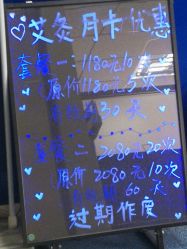 艾灸月卡优惠
套餐一:1180元10次
(原价1180元5次
有效期30天
套餐二2080元20次
(原价2080元10次
有效期60天
过期作废